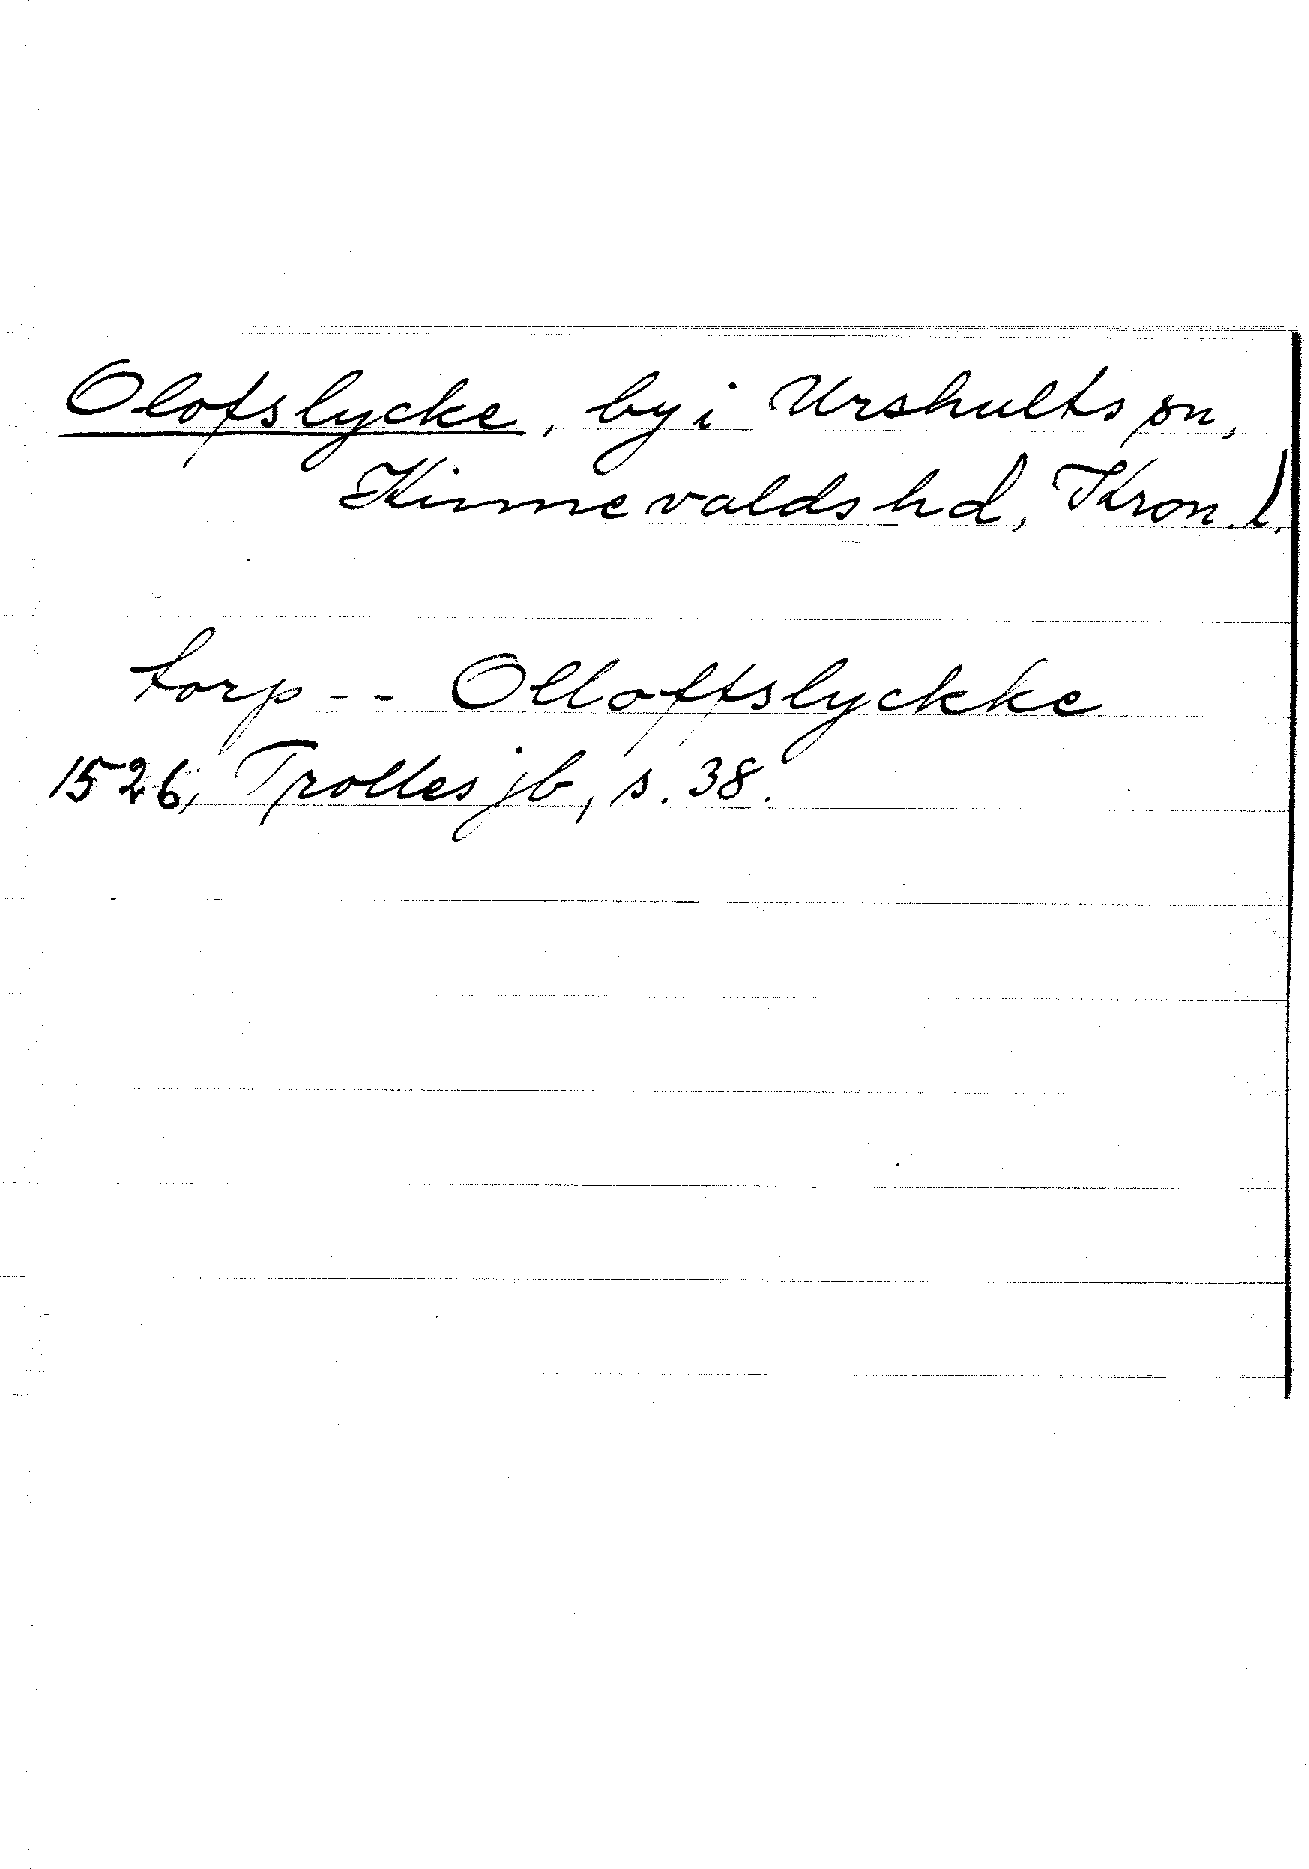 Olofslycke, by i Urshults sn,
Kinnevalds hd, Kron. l.
torp -- Olloffslyckke
1526, Trolles jb, s. 38.